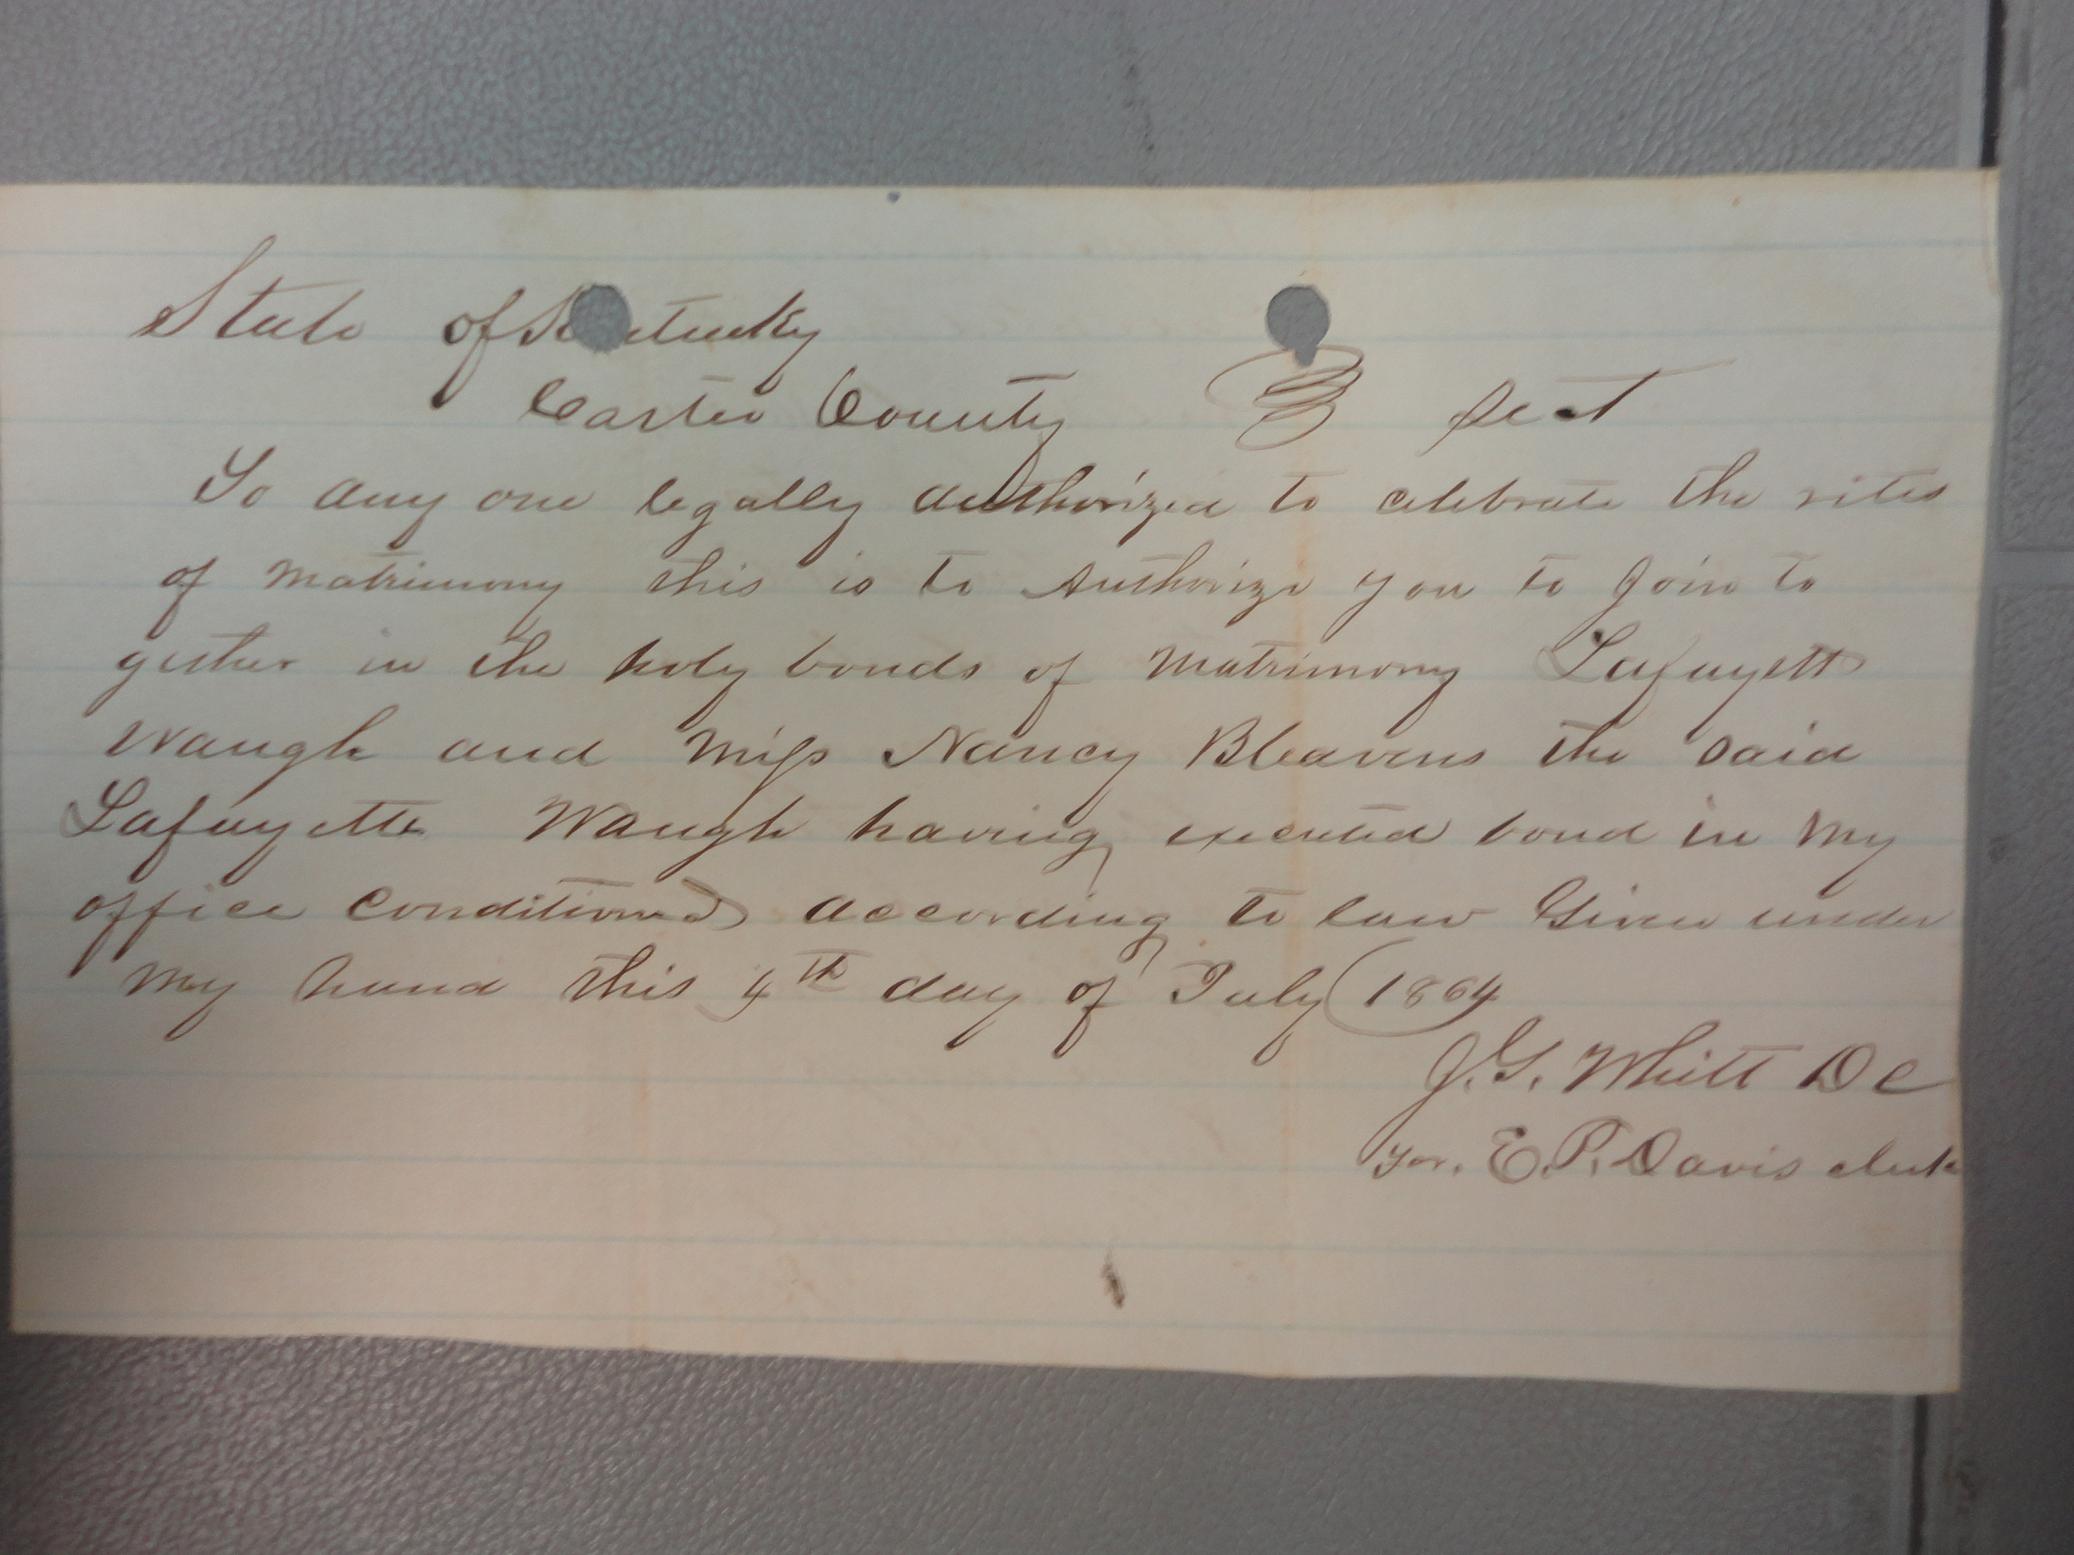 State of Kentucky
Carter County Sct
To any one legally authorized to celebrate the rites
of matrimony this is to Authorize you to Join to
gether in the holy bonds of matrimony Lafayett
Waugh and Miss Nancy Bleavens the said
Lafayette Waugh having executed bond in my
office conditioned according to law Given under
my hand this 4th day of July 1864
J. G. Whitt DC
For. E. P. Davis clerk